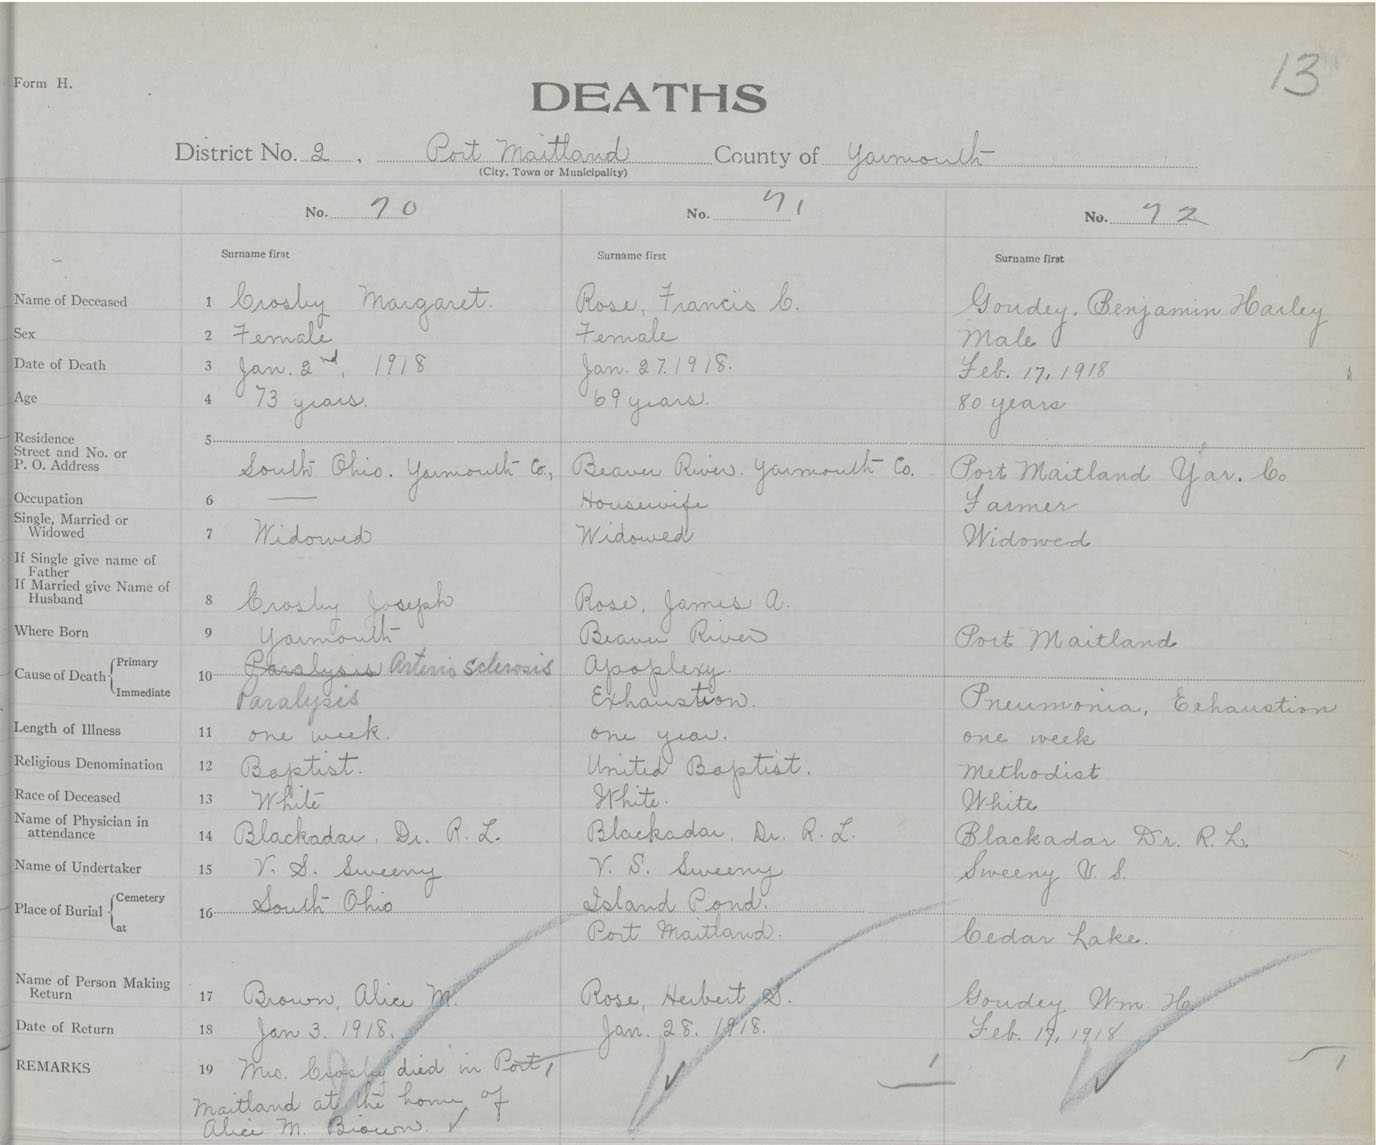 13
Form H.
DEATHS
District No. 2, Port Maitland County of Yarmouth
(City, Town or Municipality)
No. 70 No. 71 No. 72
Surname first Surname first Surname first
Name of Deceased 1 Crosby Margaret. Rose, Francis C. Goudey, Benjamin Harley
Sex 2 Female Female Male
Date of Death 3 Jan. 2nd, 1918 Jan. 27. 1918. Feb. 17, 1918
Age 4 73 years. 69 years. 80 years
Residence 5
Street and No. or
P. O. Address South Ohio. Yarmouth Co., Beaver River Yarmouth Co. Port Maitland Yar. Co
Occupation 6 — Housewife Farmer
Single, Married or
Widowed 7 Widowed Widowed Widowed
If Single give name of
Father
If Married give Name of
Husband 8 Crosby Joseph Rose, James A.
Where Born 9 Yarmouth Beaver River Port Maitland
Cause of Death Primary 10 Paralysis Arterio sclerosis Apoplexy.
Immediate Paralysis Exhaustion. Pneumonia, Exhaustion
Length of Illness 11 one week. one year. one week
Religious Denomination 12 Baptist. United Baptist. Methodist
Race of Deceased 13 White White. White
Name of Physician in
attendance 14 Blackadar, Dr. R. L. Blackadar, Dr. R. L. Blackadar Dr. R. L.
Name of Undertaker 15 V. S. Sweeny V. S. Sweeny Sweeny V. S.
Place of Burial Cemetery 16 South Ohio Island Pond.
at Port Maitland. Cedar Lake.
Name of Person Making
Return 17 Brown, Alice M. Rose, Herbert S. Goudey Wm H.
Date of Return 18 Jan 3. 1918. Jan. 28. 1918. Feb. 19, 1918
REMARKS 19 Mrs. Crosby died in Port 1 1
Maitland at the home of
Alice M. Brown.